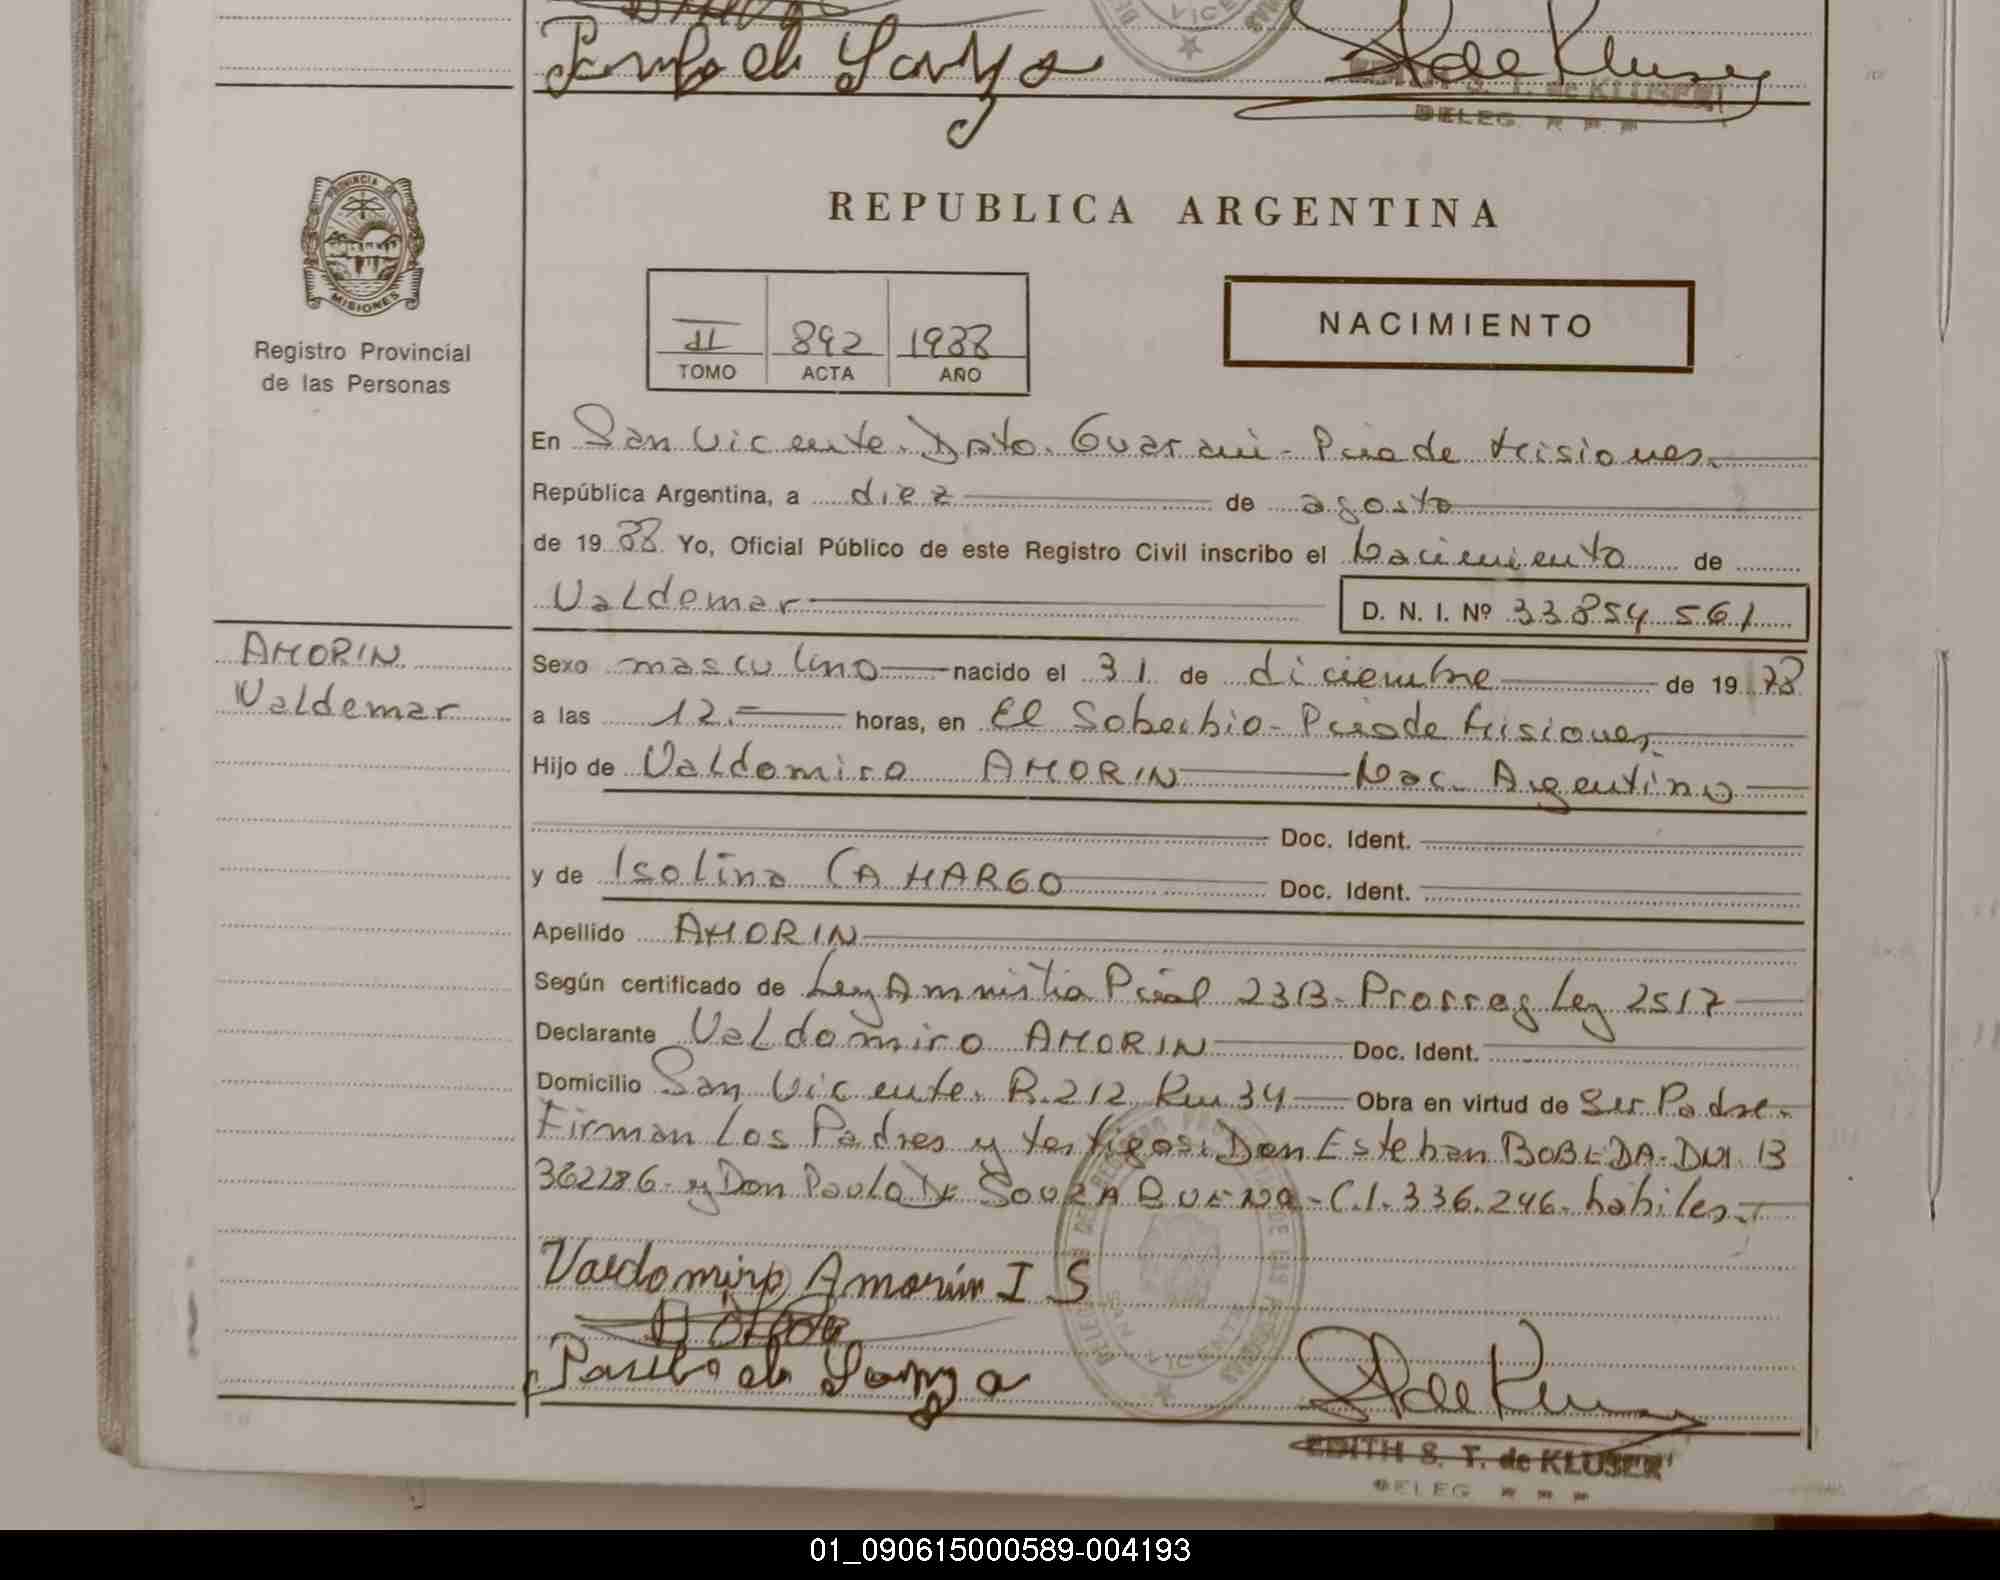 EDITH S. T. de KLUSENER
DELEG. R P P
PROVINCIA DE
MISIONES
Registro Provincial
de las Personas
REPUBLICA ARGENTINA
II 892 1988
TOMO ACTA AÑO
NACIMIENTO
En San Vicente. Dpto. Guaraní - Pcia de Misiones.
República Argentina, a diez de agosto
de 1988 Yo, Oficial Público de este Registro Civil inscribo el Nacimiento de
Valdemar D. N. I. Nº 33.854.561
AMORIN
Valdemar
Sexo masculino nacido el 31 de diciembre de 1978
a las 12.= horas, en El Soberbio - Pcia de Misiones.
Hijo de Valdomiro AMORIN Nac. Argentino
Doc. Ident.
y de Isolina CAMARGO Doc. Ident.
Apellido AMORIN
Según certificado de Ley Amnistia Pcial 23B - Prorrog Ley 2517
Declarante Valdomiro AMORIN Doc. Ident.
Domicilio San Vicente. R. 212 Km 34 Obra en virtud de Ser Padre.
Firman Los Padres y testigos: Don Esteban BOBEDA - DNI. 13
362286 - y Don Paulo De SOUZA BUENO - C.I. 336.246 - hábiles.
Valdomiro Amorin I S
EDITH S. T. de KLUSENER
DELEG R P P
01_090615000589-004193